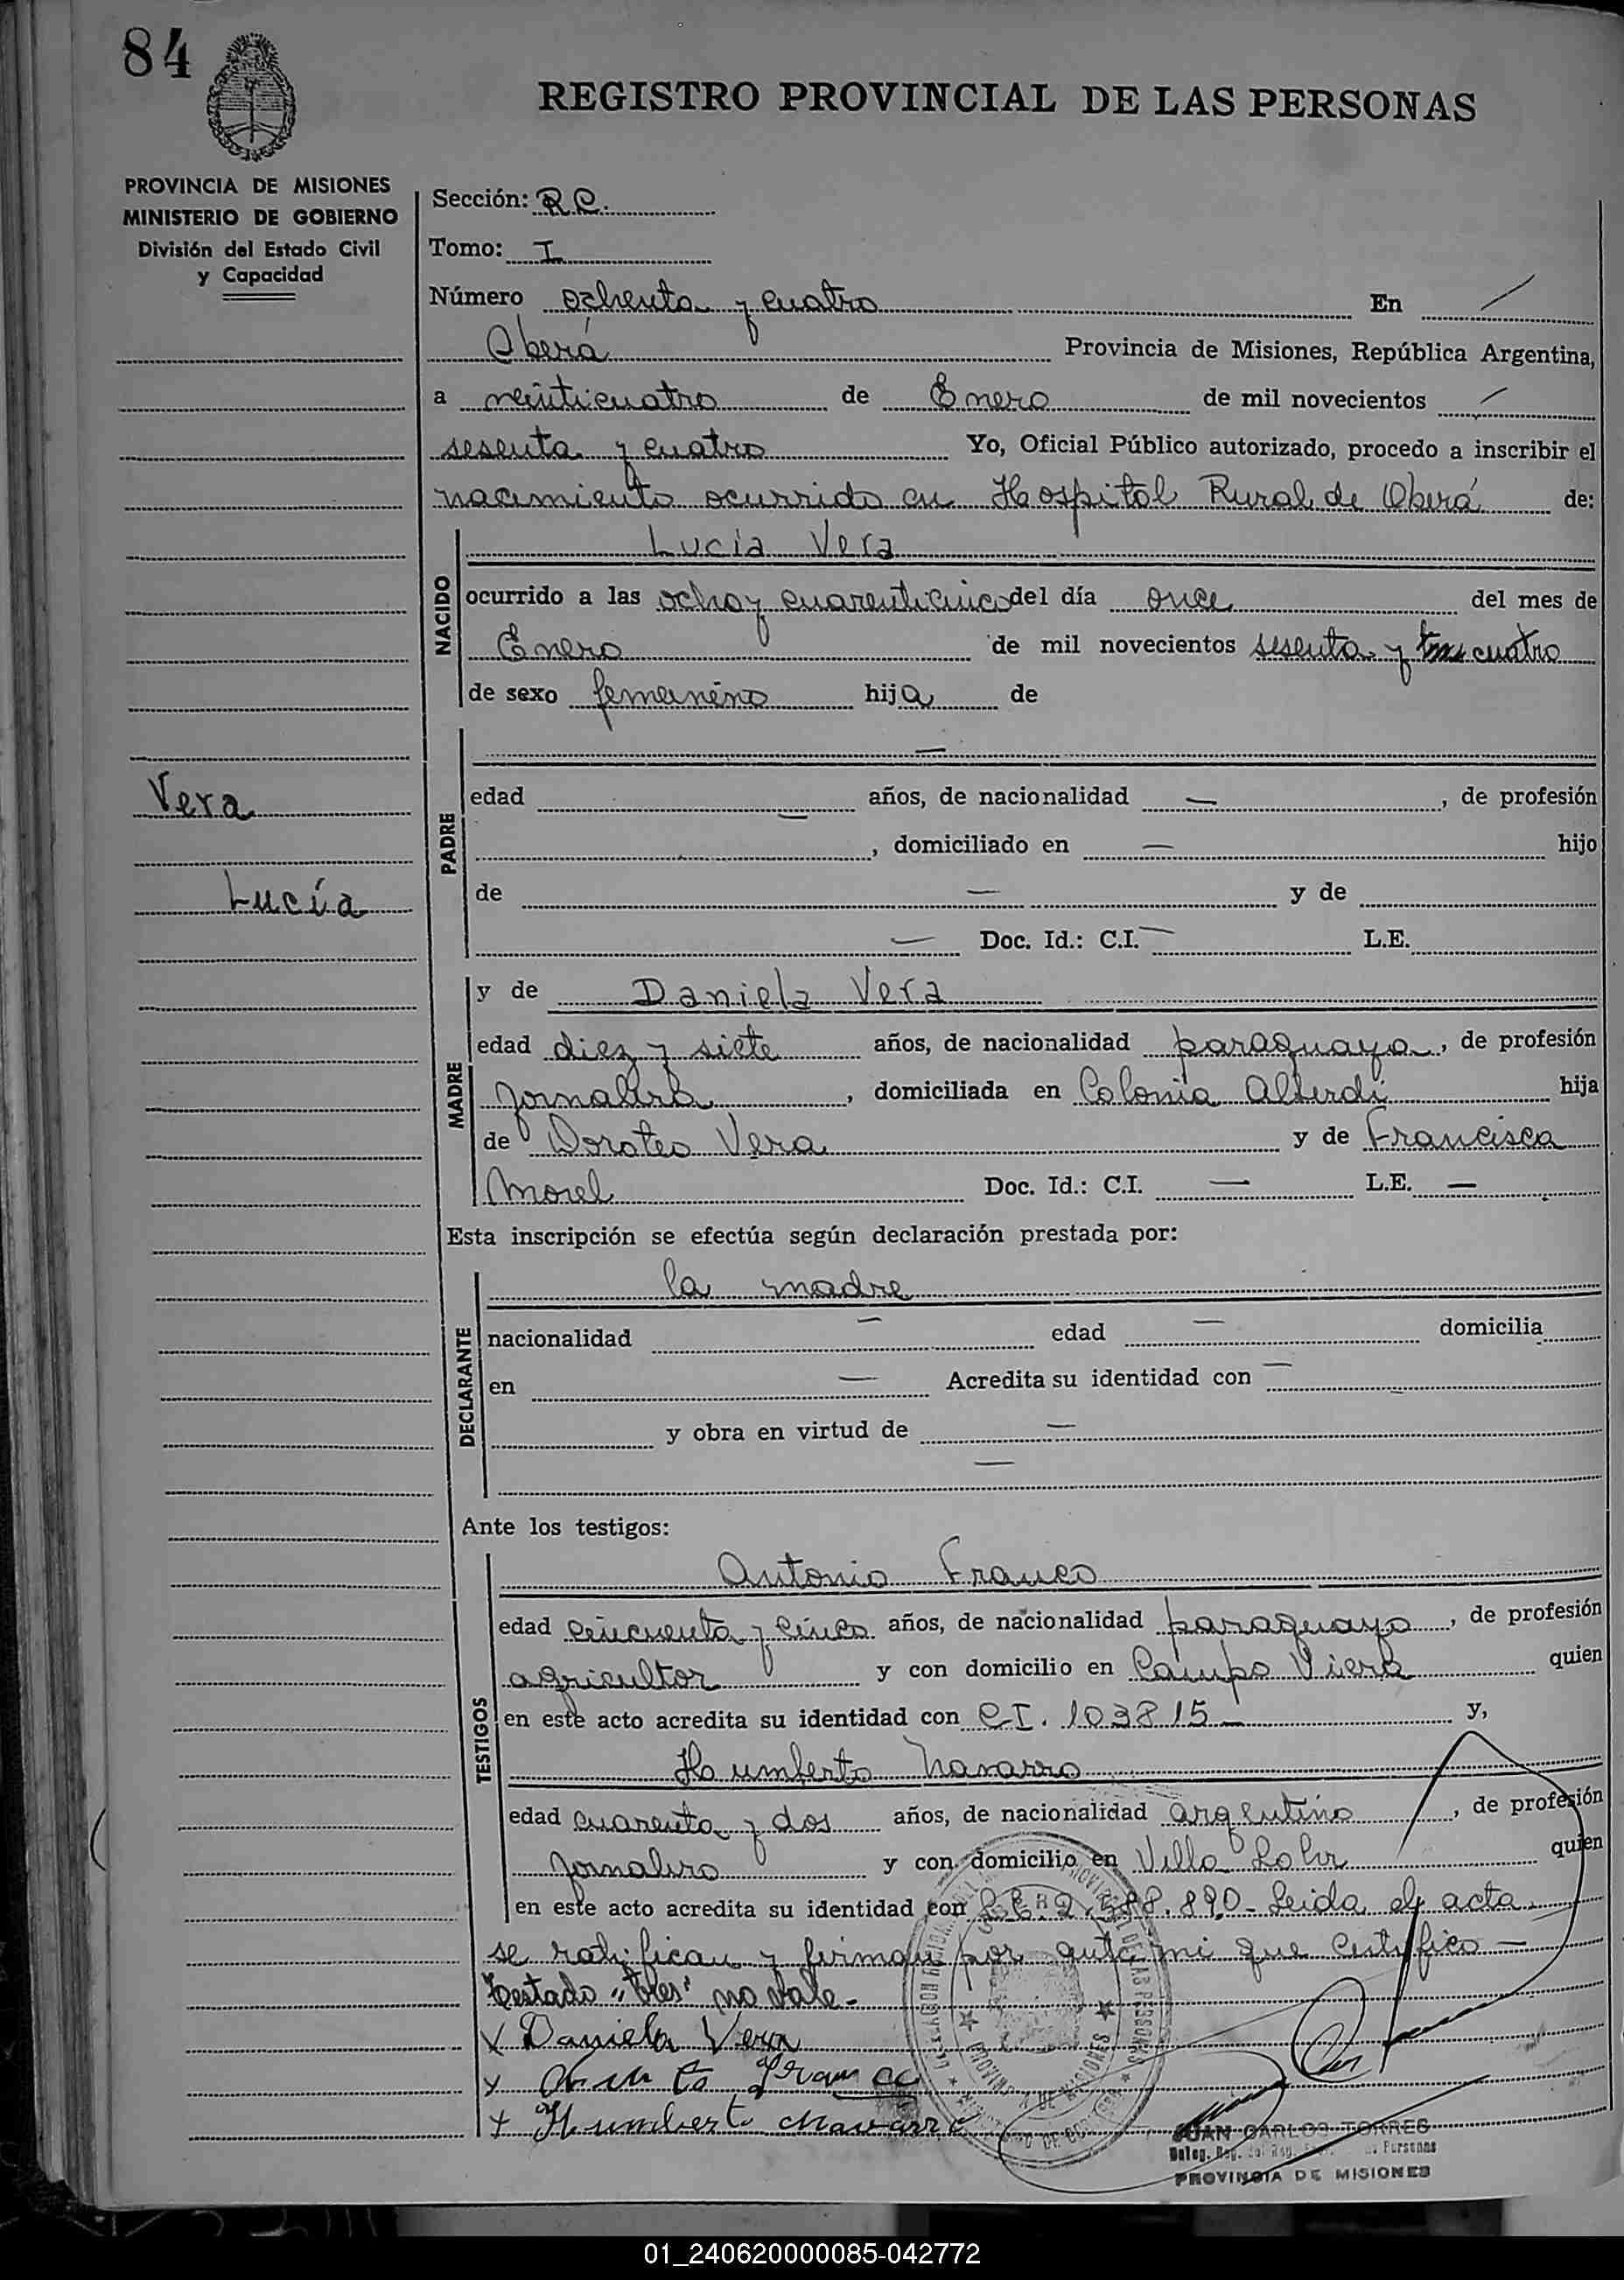 84
REGISTRO PROVINCIAL DE LAS PERSONAS
PROVINCIA DE MISIONES
MINISTERIO DE GOBIERNO
División del Estado Civil
y Capacidad
Sección: R.C.
Tomo: I
Número ochenta y cuatro En
Oberá Provincia de Misiones, República Argentina,
a veinticuatro de Enero de mil novecientos
sesenta y cuatro Yo, Oficial Público autorizado, procedo a inscribir el
nacimiento ocurrido en Hospital Rural de Oberá de:
NACIDO
Lucía Vera
ocurrido a las ocho y cuarenticinco del día once del mes de
Enero de mil novecientos sesenta y tres cuatro
de sexo femenino hija de
Vera
Lucía
PADRE
—
edad — años, de nacionalidad —, de profesión
, domiciliado en — hijo
de — y de
— Doc. Id.: C.I. — L.E.
MADRE
y de Daniela Vera
edad diez y siete años, de nacionalidad paraguaya, de profesión
jornalera, domiciliada en Colonia Alberdi hija
de Doroteo Vera y de Francisca
Morel Doc. Id.: C.I. — L.E. —
Esta inscripción se efectúa según declaración prestada por:
DECLARANTE
la madre
nacionalidad — edad — domicilia
en — Acredita su identidad con —
y obra en virtud de —
—
Ante los testigos:
TESTIGOS
Antonio Franco
edad cincuenta y cinco años, de nacionalidad paraguayo, de profesión
agricultor y con domicilio en Campo Viera quien
en este acto acredita su identidad con C.I. 103815— y,
Humberto Navarro
edad cuarenta y dos años, de nacionalidad argentino, de profesión
jornalero y con domicilio en Villa Lohr quien
en este acto acredita su identidad con 890- Leida el acta
se ratifican y firman por ante mi que Certifico —
Testado "tres" no vale-
x Daniela Vera
x Franco
x Humberto Navarro
PROVINCIA DE MISIONES
JUAN CARLOS TORRES
Deleg. Personas
PROVINCIA DE MISIONES
01_240620000085-042772